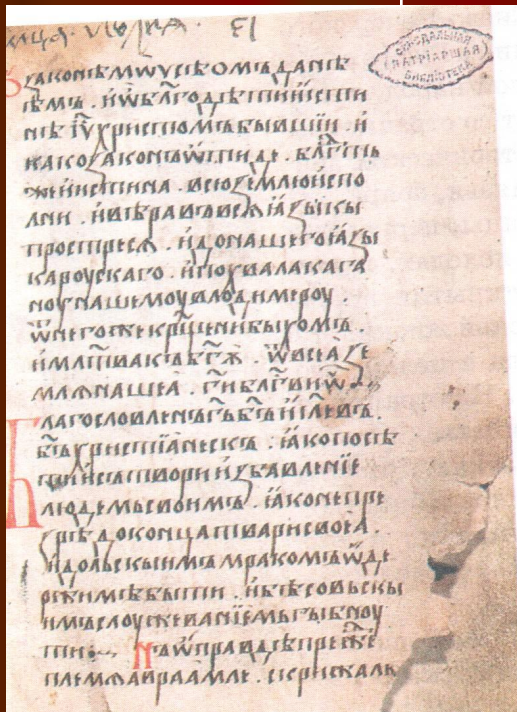 СѴНОДАЛЬНАЯ
ПАТРІАРШАЯ
БИБЛІОТЕКА
Ꙁаконѣ мѡѵсѣомъ данѣ
ѣмъ . и ѡ блг҃одѣти и исти
нѣ іу҃ христомъ бывшіи и
како ꙁаконъ ѿиде . блг҃ть
же и истина . всю ꙁемлю испо
лни . и вѣра въ всѧ ꙗꙁыкы
простресѧ . и до нашего ꙗꙁы
ка роускаго . и похвала кага
ноу нашемоу влодимероу .
ѿ негоже крщ҃ени быхомъ .
и млт҃ва къ ѿ всеа ꙁе
млѧ нашеа . ги҃ блг҃ви
Благословленъ гь҃ бъ҃ иꙁл҃евъ .
бъ҃ христіанескъ . ꙗко посѣ
ти и сътвори иꙁбавленіе
людемь своимъ . ꙗко не пре
ꙁрѣ до конца твари своеа .
идольскыимъ мракомъ ѡде
ржимѣ быти . и бѣсовьскы
имь слоужеваніемь гыбноу
ти ... Нъ ѡправдѣ прежⷣе
племѧ авраамле . скрижаль